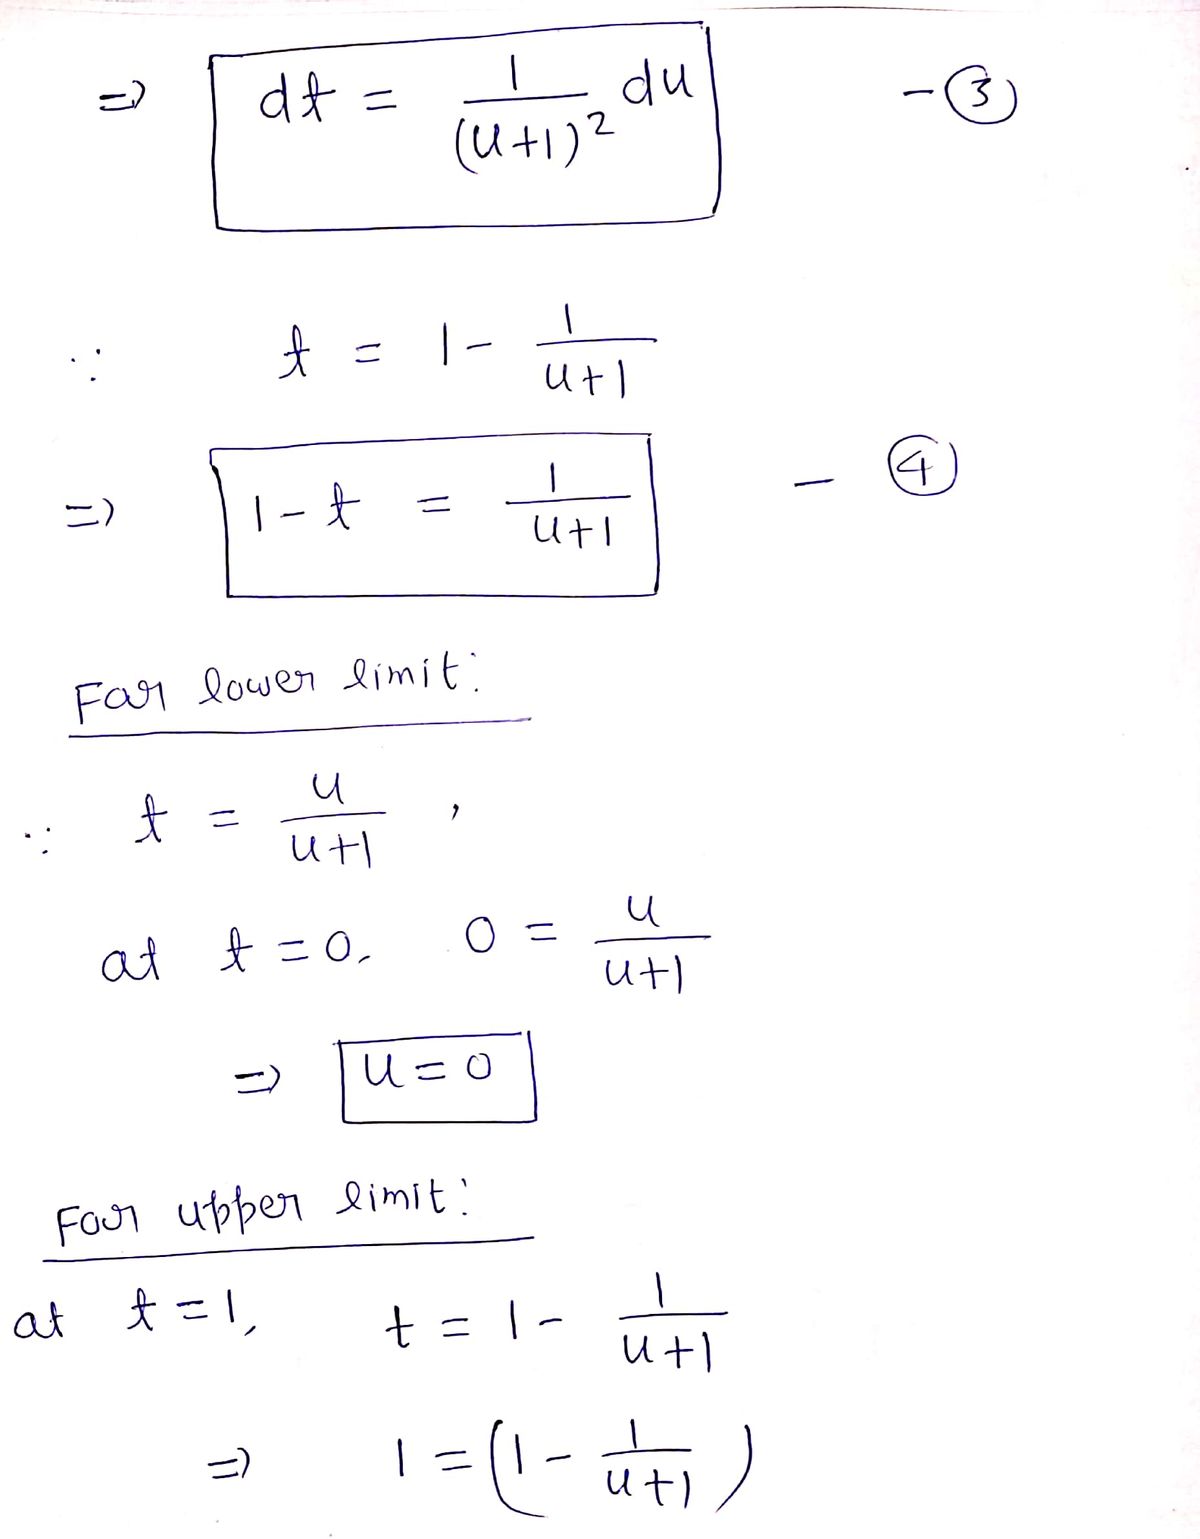 => dt = 1/(u+1)² du - ③
∵ t = 1 - 1/(u+1)
=> 1 - t = 1/(u+1) - ④
For lower limit:
∵ t = u/(u+1) ,
at t = 0, 0 = u/(u+1)
=> u = 0
For upper limit:
at t = 1, t = 1 - 1/(u+1)
=> 1 = (1 - 1/(u+1))